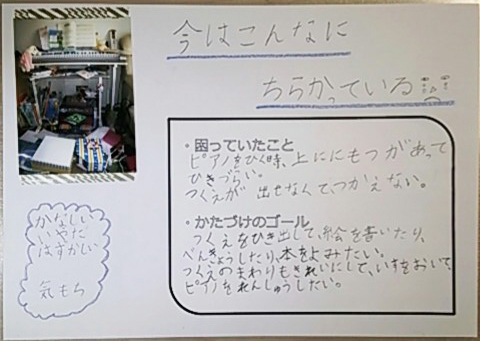 今はこんなに
ちらかっている
・困っていたこと
ピアノをひく時、上ににもつがあって
ひきづらい。
つくえが出せなくて、つかえない。
・かたづけのゴール
つくえをひき出して、絵を書いたり、
べんきょうしたり、本をよみたい。
つくえのまわりもきれいにして、いすをおいて、
ピアノをれんしゅうしたい。
かなしい
いやだ
はずかしい
気もち